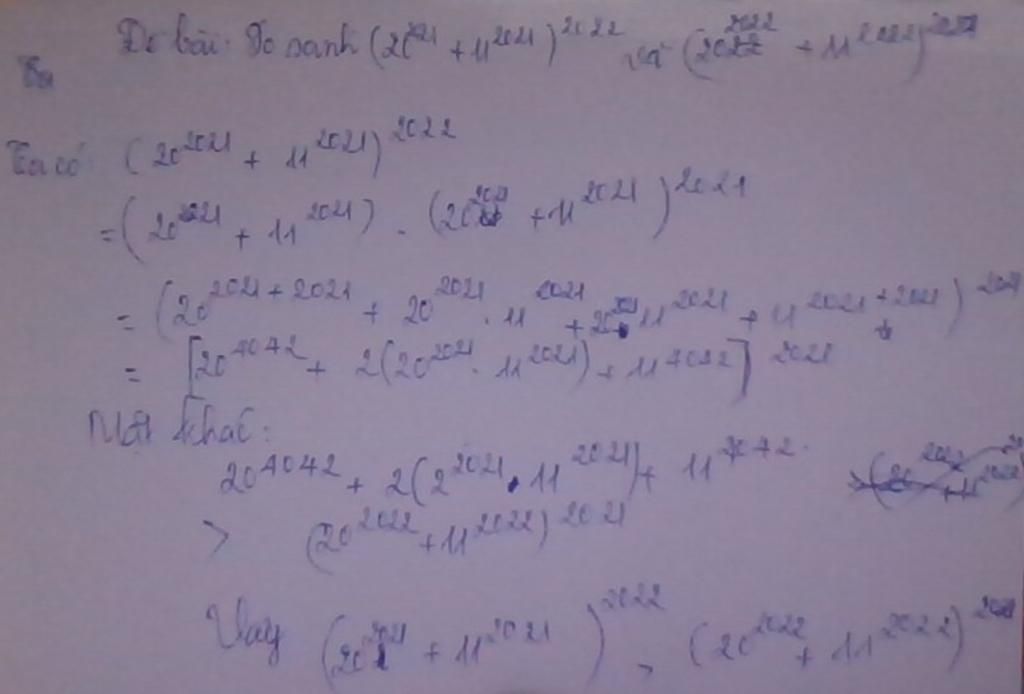 Đề bài: So sánh (20^2021 + 11^2021)^2022 và (20^2022 + 11^2022)
Ta có: (20^2021 + 11^2021)^2022
= (20^2021 + 11^2021) . (20^2021 + 11^2021)^2021
= (20^2021+2021 + 20^2021 . 11^2021 + 20^2021 . 11^2021 + 11^2021+2021)^2021
= [20^4042 + 2(20^2021 . 11^2021) + 11^4042]^2021
Mặt khác:
20^4042 + 2(2^2021 . 11^2021) + 11^4042
> (20^2022 + 11^2022)^2021
Vậy (20^2021 + 11^2021)^2022 > (20^2022 + 11^2022)^2021